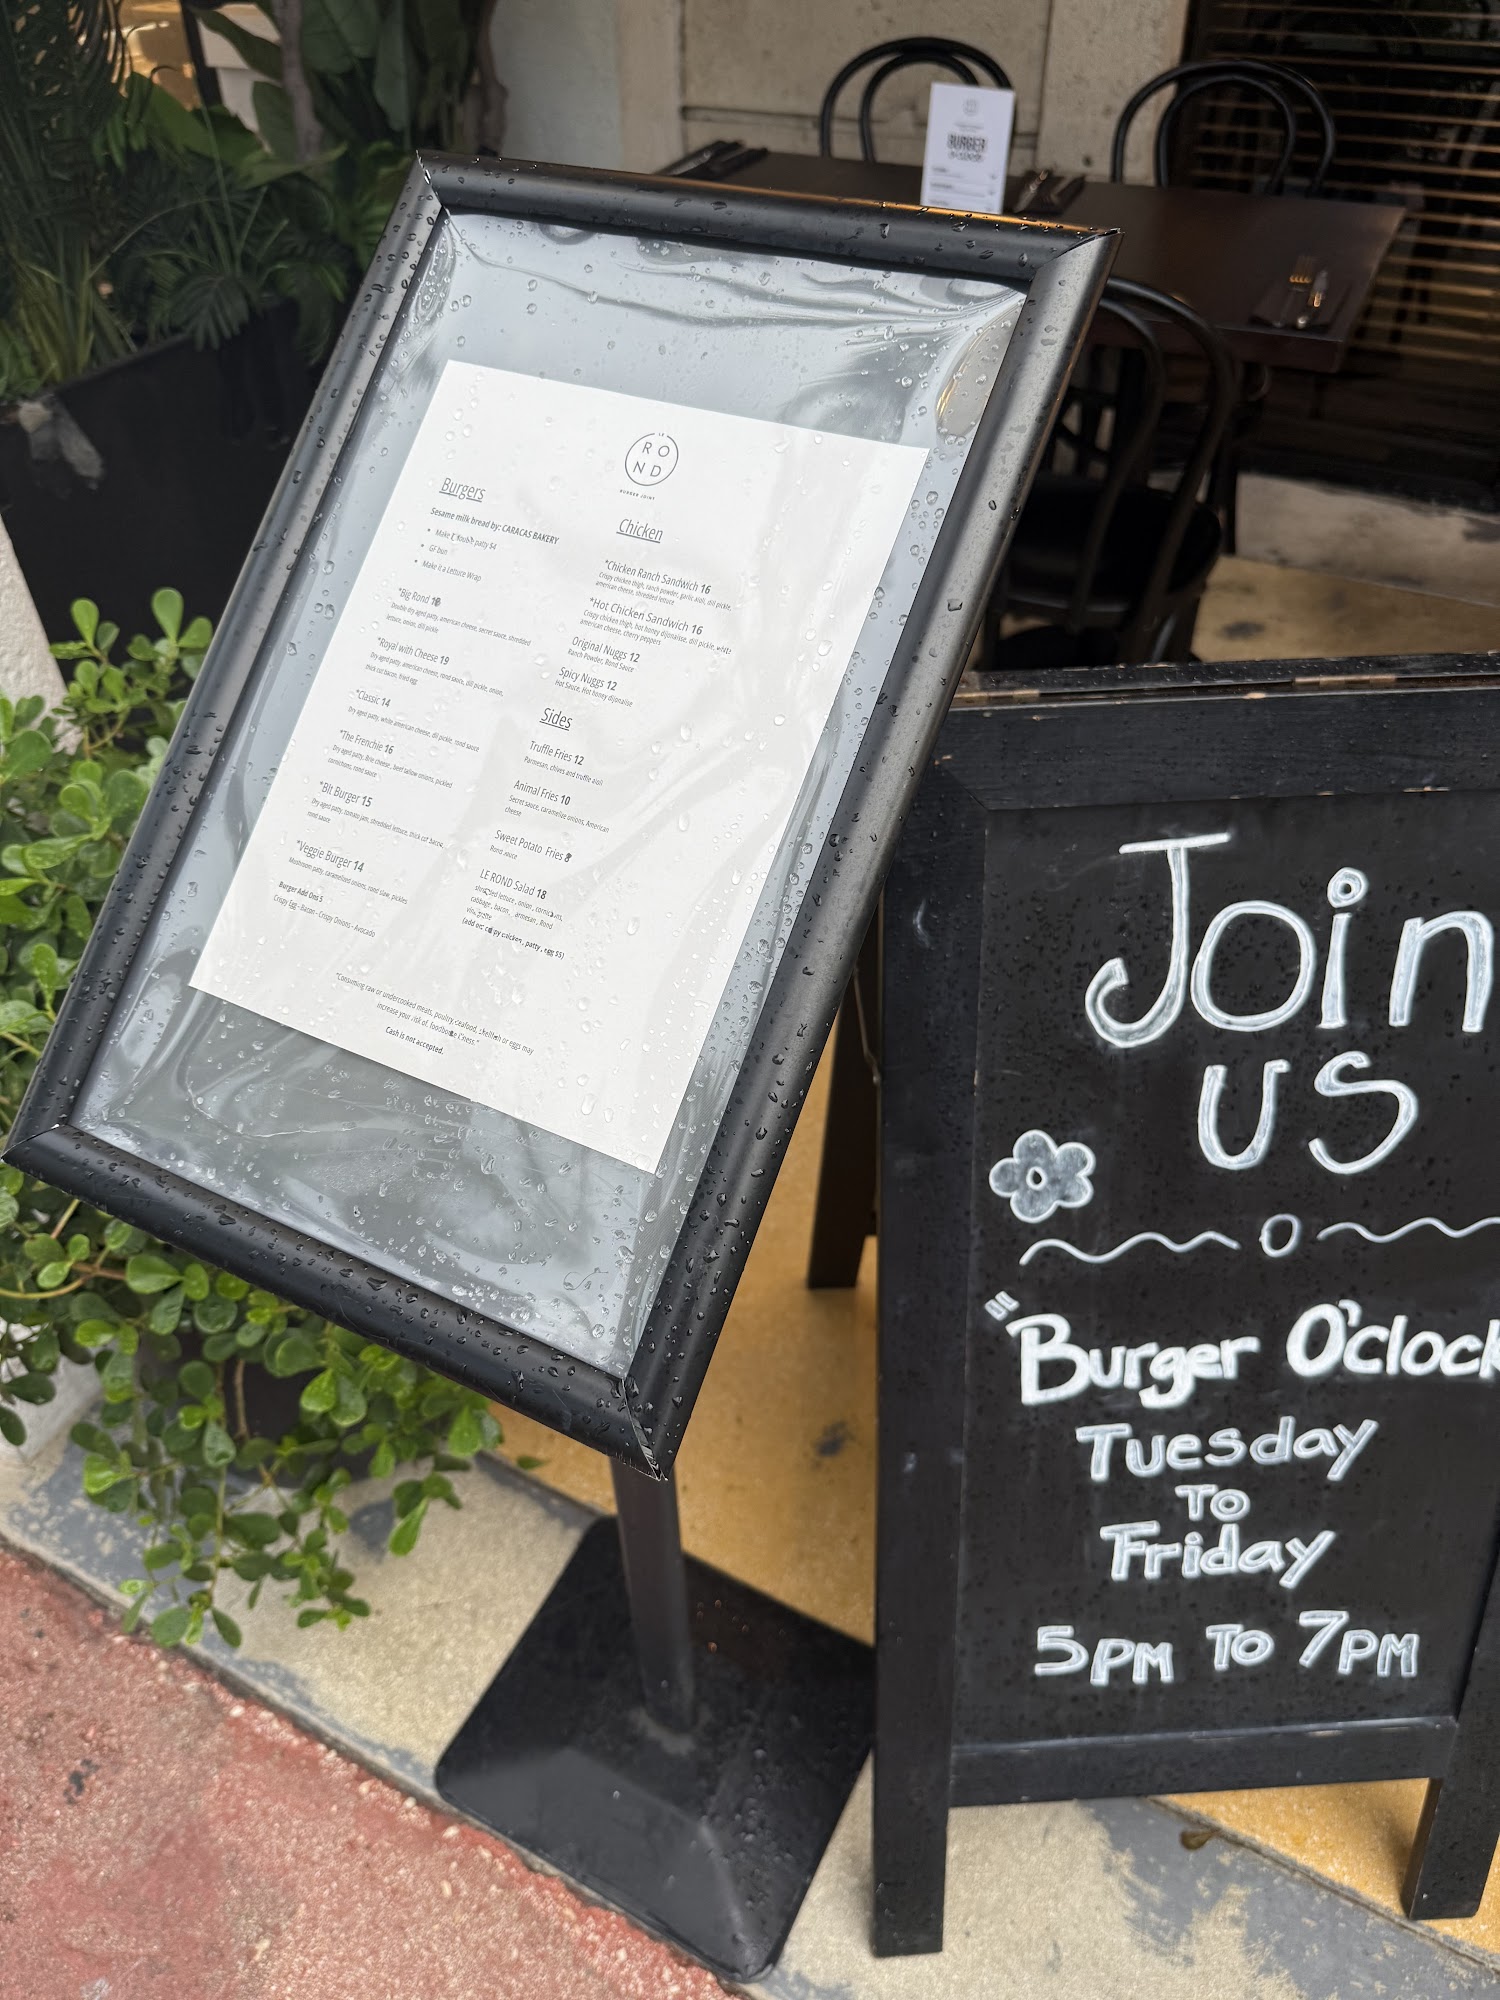 LE
RO
ND
BURGER JOINT
Burgers
Sesame milk bread by: CARACAS BAKERY
Make patty $4
GF bun
Make it a Lettuce Wrap
*Big Rond
Double dry aged patty, american cheese, secret sauce, shredded
lettuce, onion, dill pickle
*Royal with Cheese 19
Dry aged patty, american cheese, rond sauce, dill pickle, onion,
thick cut bacon, fried egg
*Classic 14
Dry aged patty, white american cheese, dill pickle, rond sauce
*The Frenchie 16
Dry aged patty, Brie cheese, beef tallow onions, pickled
cornichons, rond sauce
*Blt Burger 15
Dry aged patty, tomato jam, shredded lettuce, thick cut bacon,
rond sauce
*Veggie Burger 14
Mushroom patty, caramelized onions, rond slaw, pickles
Burger Add Ons 5
Crispy Egg - Bacon - Crispy Onions - Avocado
Chicken
*Chicken Ranch Sandwich 16
Crispy chicken thigh, ranch powder, garlic aioli, dill pickle,
american cheese, shredded lettuce
*Hot Chicken Sandwich 16
Crispy chicken thigh, hot honey dijonaisse, dill pickle, white
american cheese, cherry peppers
Original Nuggs 12
Ranch Powder, Rond Sauce
Spicy Nuggs 12
Hot Sauce, Hot honey dijonaiise
Sides
Truffle Fries 12
Parmesan, chives and truffle aioli
Animal Fries 10
Secret sauce, caramelize onions, American
cheese
Sweet Potato Fries 8
Rond sauce
LE ROND Salad 18
lettuce, onion,
cabbage, bacon, Rond
(add on: crispy chicken, patty, egg $5)
"Consuming raw or undercooked meats, poultry, seafood, shellfish or eggs may
increase your risk of foodborne illness."
Cash is not accepted.
BURGER
O'CLOCK
Join
us
"Burger O'clock
Tuesday
To
Friday
5PM To 7PM